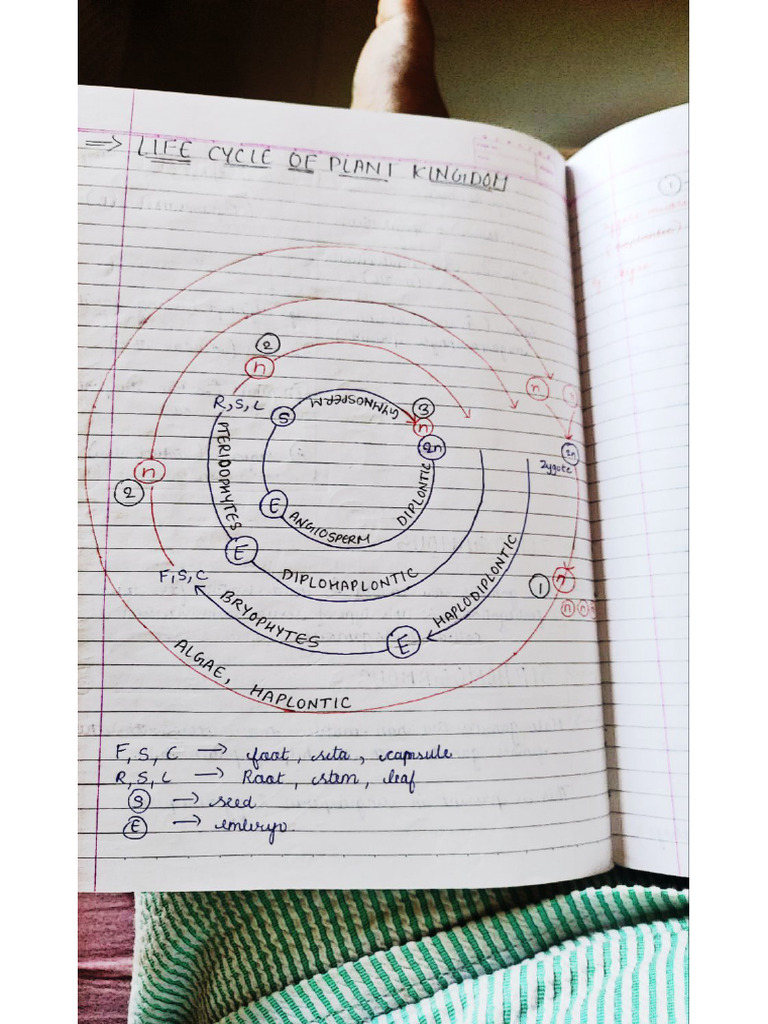 ⇒ LIFE CYCLE OF PLANT KINGDOM
n
2
n
R, S, L
S
GYMNOSPERM
3
n
2n
2n
zygote
PTERIDOPHYTES
n
2
E
ANGIOSPERM
DIPLONTIC
E
DIPLOHAPLONTIC
HAPLODIPLONTIC
1
n
n n n
F, S, C
BRYOPHYTES
E
ALGAE, HAPLONTIC
F, S, C → foot, seta, capsule
R, S, L → Root, stem, leaf
S → seed
E → embryo.
1